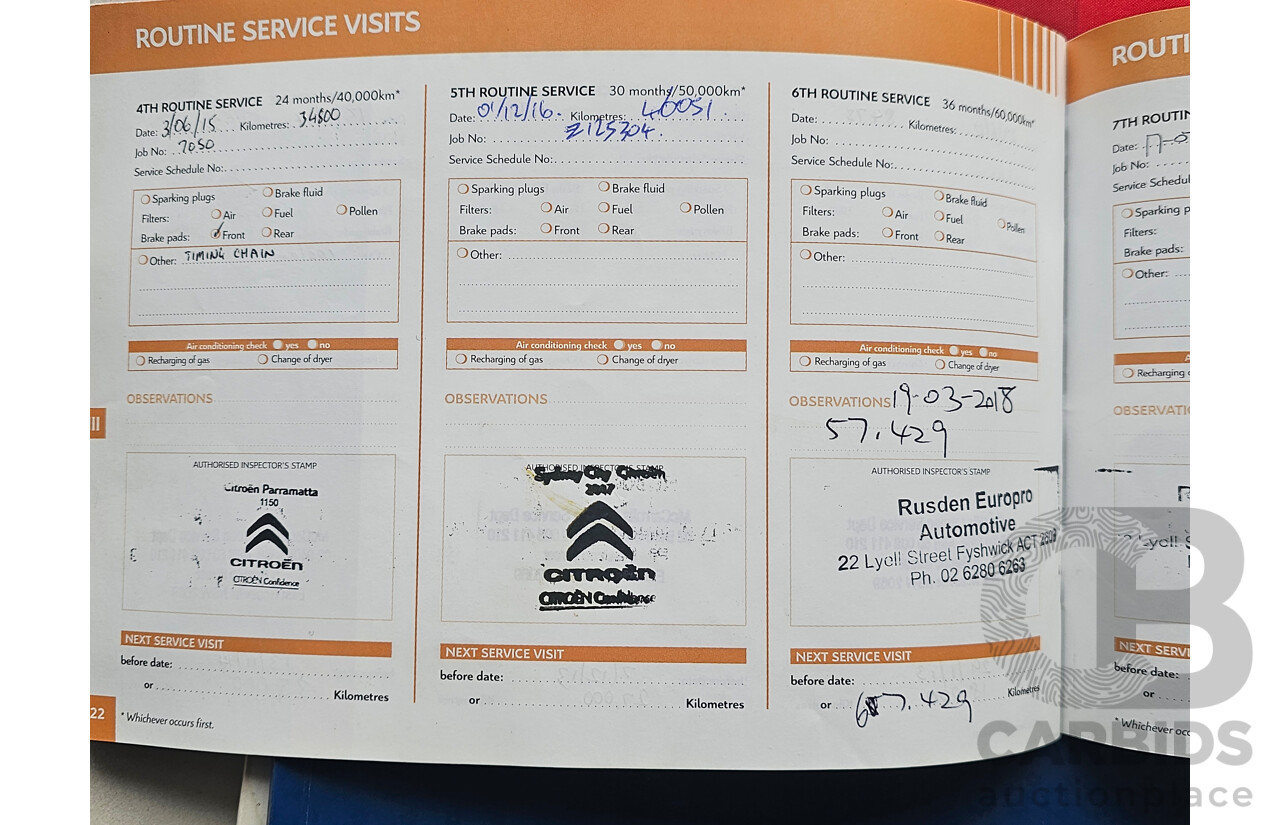 ROUTINE SERVICE VISITS
4TH ROUTINE SERVICE 24 months/40,000km*
Date: 3/06/15 Kilometres: 34800
Job No: 7050
Service Schedule No:
Sparking plugs Brake fluid
Filters: Air Fuel Pollen
Brake pads: Front Rear
Other: TIMING CHAIN
Air conditioning check yes no
Recharging of gas Change of dryer
OBSERVATIONS
AUTHORISED INSPECTOR'S STAMP
Citroën Parramatta
1150
CITROËN
CITROËN Confidence
NEXT SERVICE VISIT
before date:
or Kilometres
22
* Whichever occurs first.
5TH ROUTINE SERVICE 30 months/50,000km*
Date: 01/12/16. Kilometres: 46051
Job No: Z125304.
Service Schedule No:
Sparking plugs Brake fluid
Filters: Air Fuel Pollen
Brake pads: Front Rear
Other:
Air conditioning check yes no
Recharging of gas Change of dryer
OBSERVATIONS
AUTHORISED INSPECTOR'S STAMP
Sydney City Citroën
2047
CITROËN
CITROËN Confidence
NEXT SERVICE VISIT
before date:
or Kilometres
6TH ROUTINE SERVICE 36 months/60,000km*
Date: Kilometres:
Job No:
Service Schedule No:
Sparking plugs Brake fluid
Filters: Air Fuel Pollen
Brake pads: Front Rear
Other:
Air conditioning check yes no
Recharging of gas Change of dryer
OBSERVATIONS 19-03-2018
57.429
AUTHORISED INSPECTOR'S STAMP
Rusden Europro
Automotive
22 Lyell Street Fyshwick ACT 2609
Ph. 02 6280 6263
NEXT SERVICE VISIT
before date:
or 67.429 Kilometres
ROUTI
7TH ROUTIN
Date:
Job No:
Service Schedul
Sparking p
Filters:
Brake pads:
Other:
Recharging
OBSERVATI
Lyell S
NEXT SERV
before date:
or
* Whichever occ
CB
CARBIDS
auctionplace